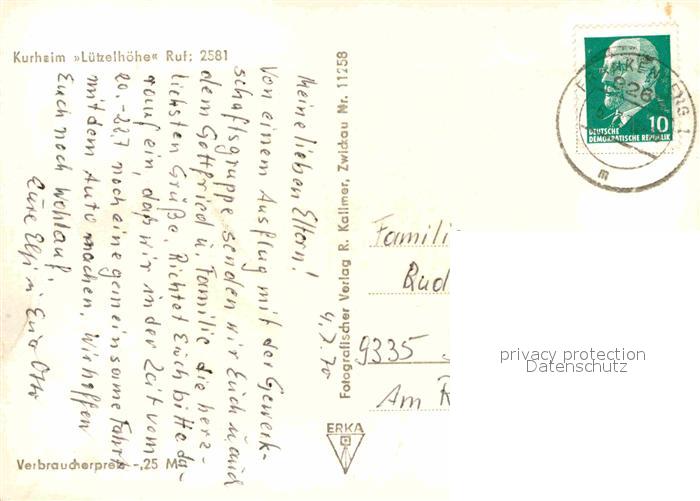 Kurheim »Lützelhöhe« Ruf: 2581
4.7.70
Meine lieben Eltern!
Von einem Ausflug mit der Gewerk-
schaftsgruppe senden wir Euch und
dem Gottfried u. Familie die herz-
lichsten Grüße. Richtet Euch bitte da-
rauf ein, daß wir in der Zeit vom
20.-22.7 noch eine gemeinsame Fahrt
mit dem Auto machen. Wir hoffen
Euch noch wohlauf!
Eure Elfi u Euer Otto
Verbraucherpreis -,25 M
Fotografischer Verlag R. Kallmer, Zwickau Nr. 11258
ERKA
DEUTSCHE
DEMOKRATISCHE REPUBLIK
10
Famili
Rud
9335
Am
privacy protection
Datenschutz